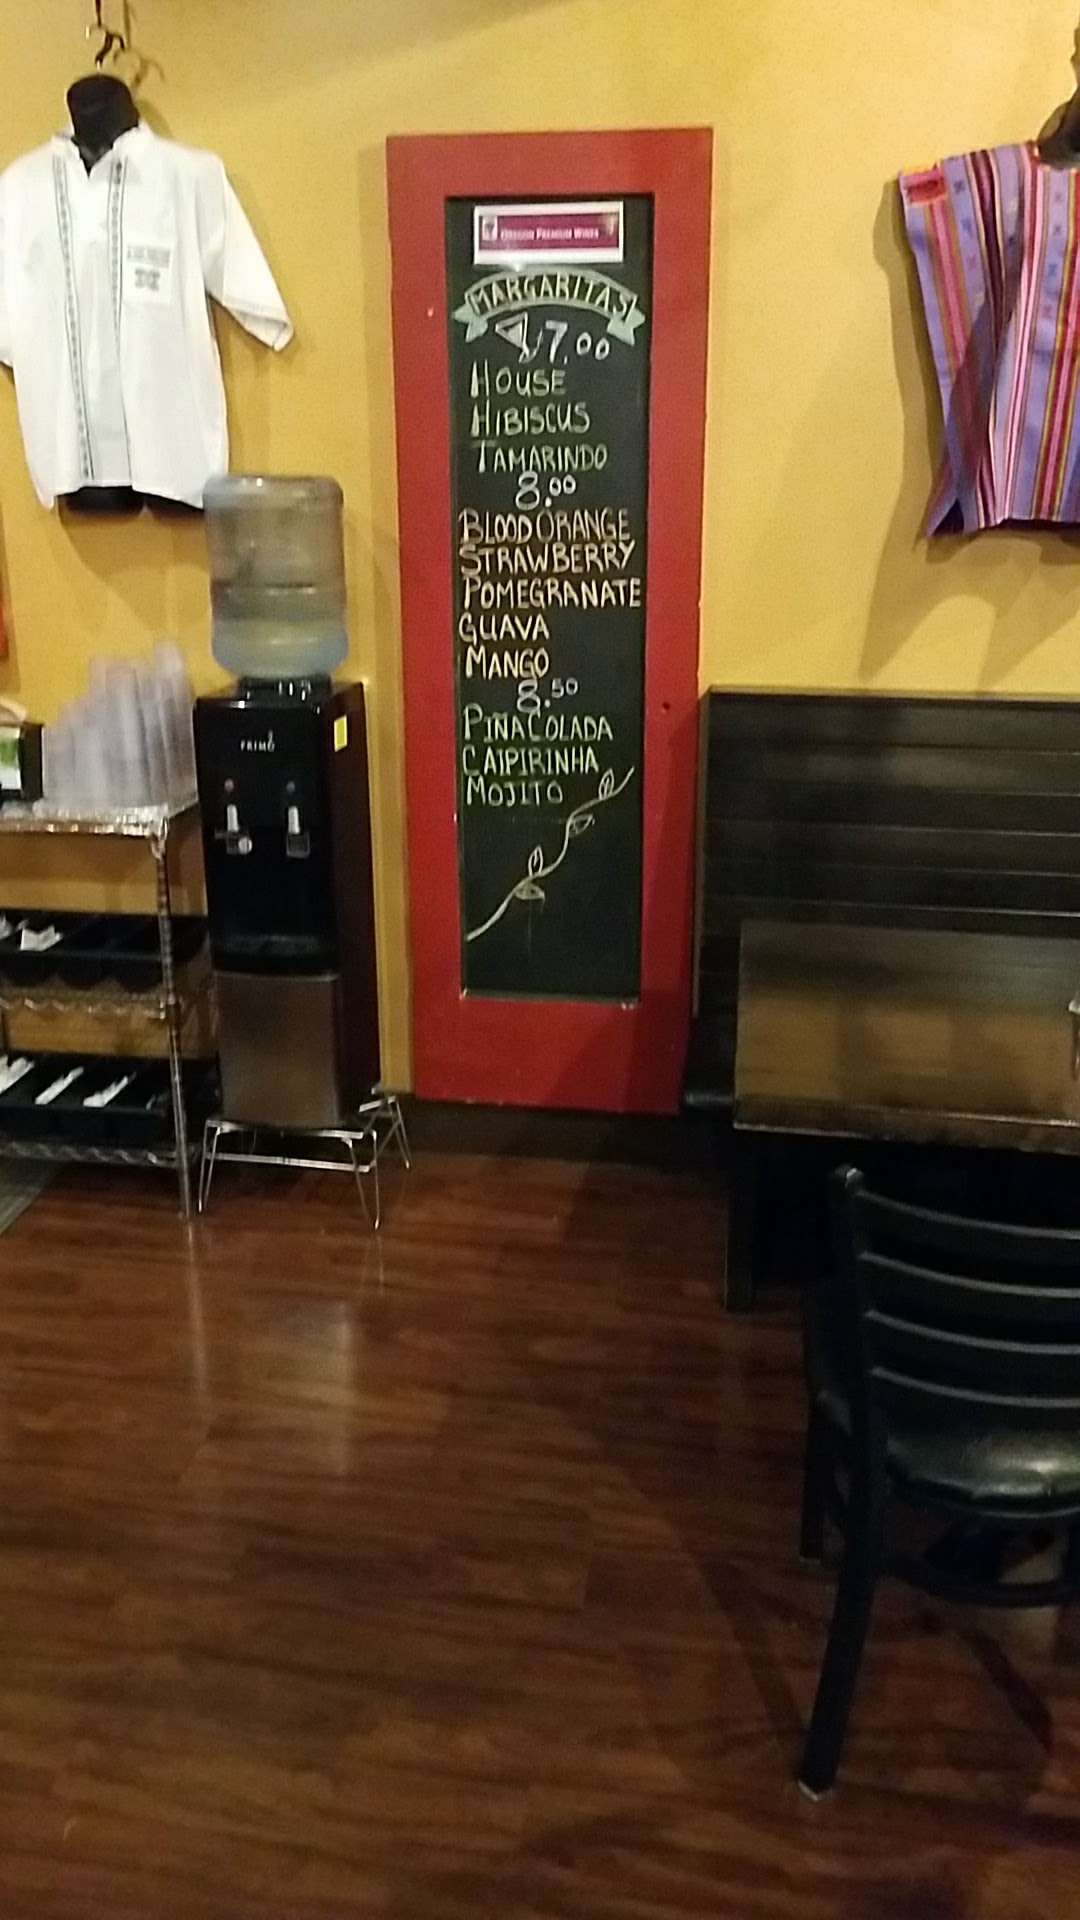 OREGON PREMIUM WINES
MARGARITAS
7.00
HOUSE
HIBISCUS
TAMARINDO
8.00
BLOOD ORANGE
STRAWBERRY
POMEGRANATE
GUAVA
MANGO
8.50
PIÑA COLADA
CAIPIRINHA
MOJITO
PRIMO